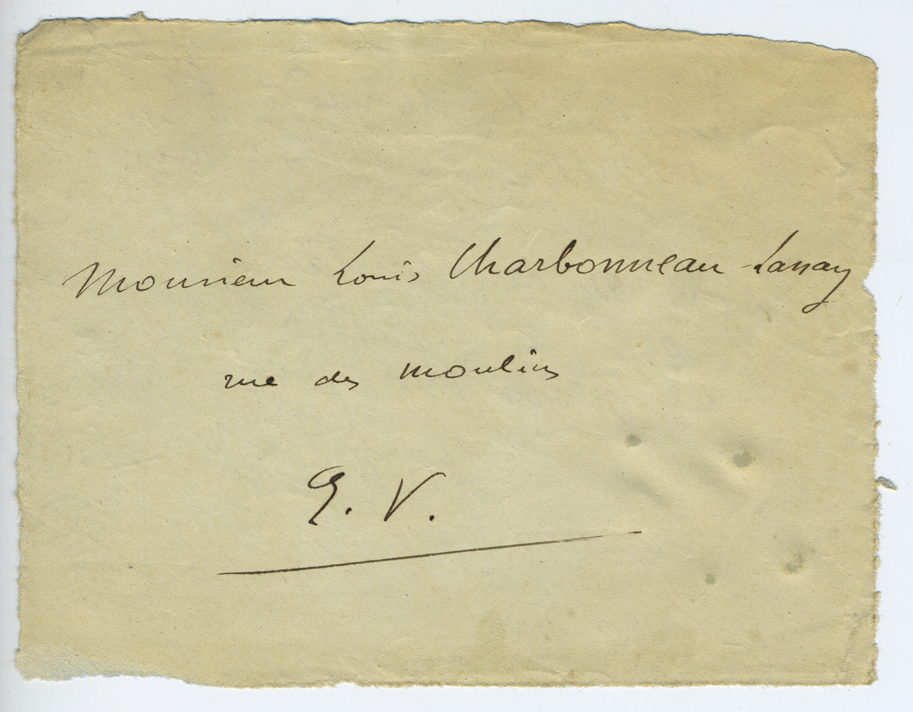 Monsieur Louis Charbonneau-Lassay
rue des moulins
E. V.